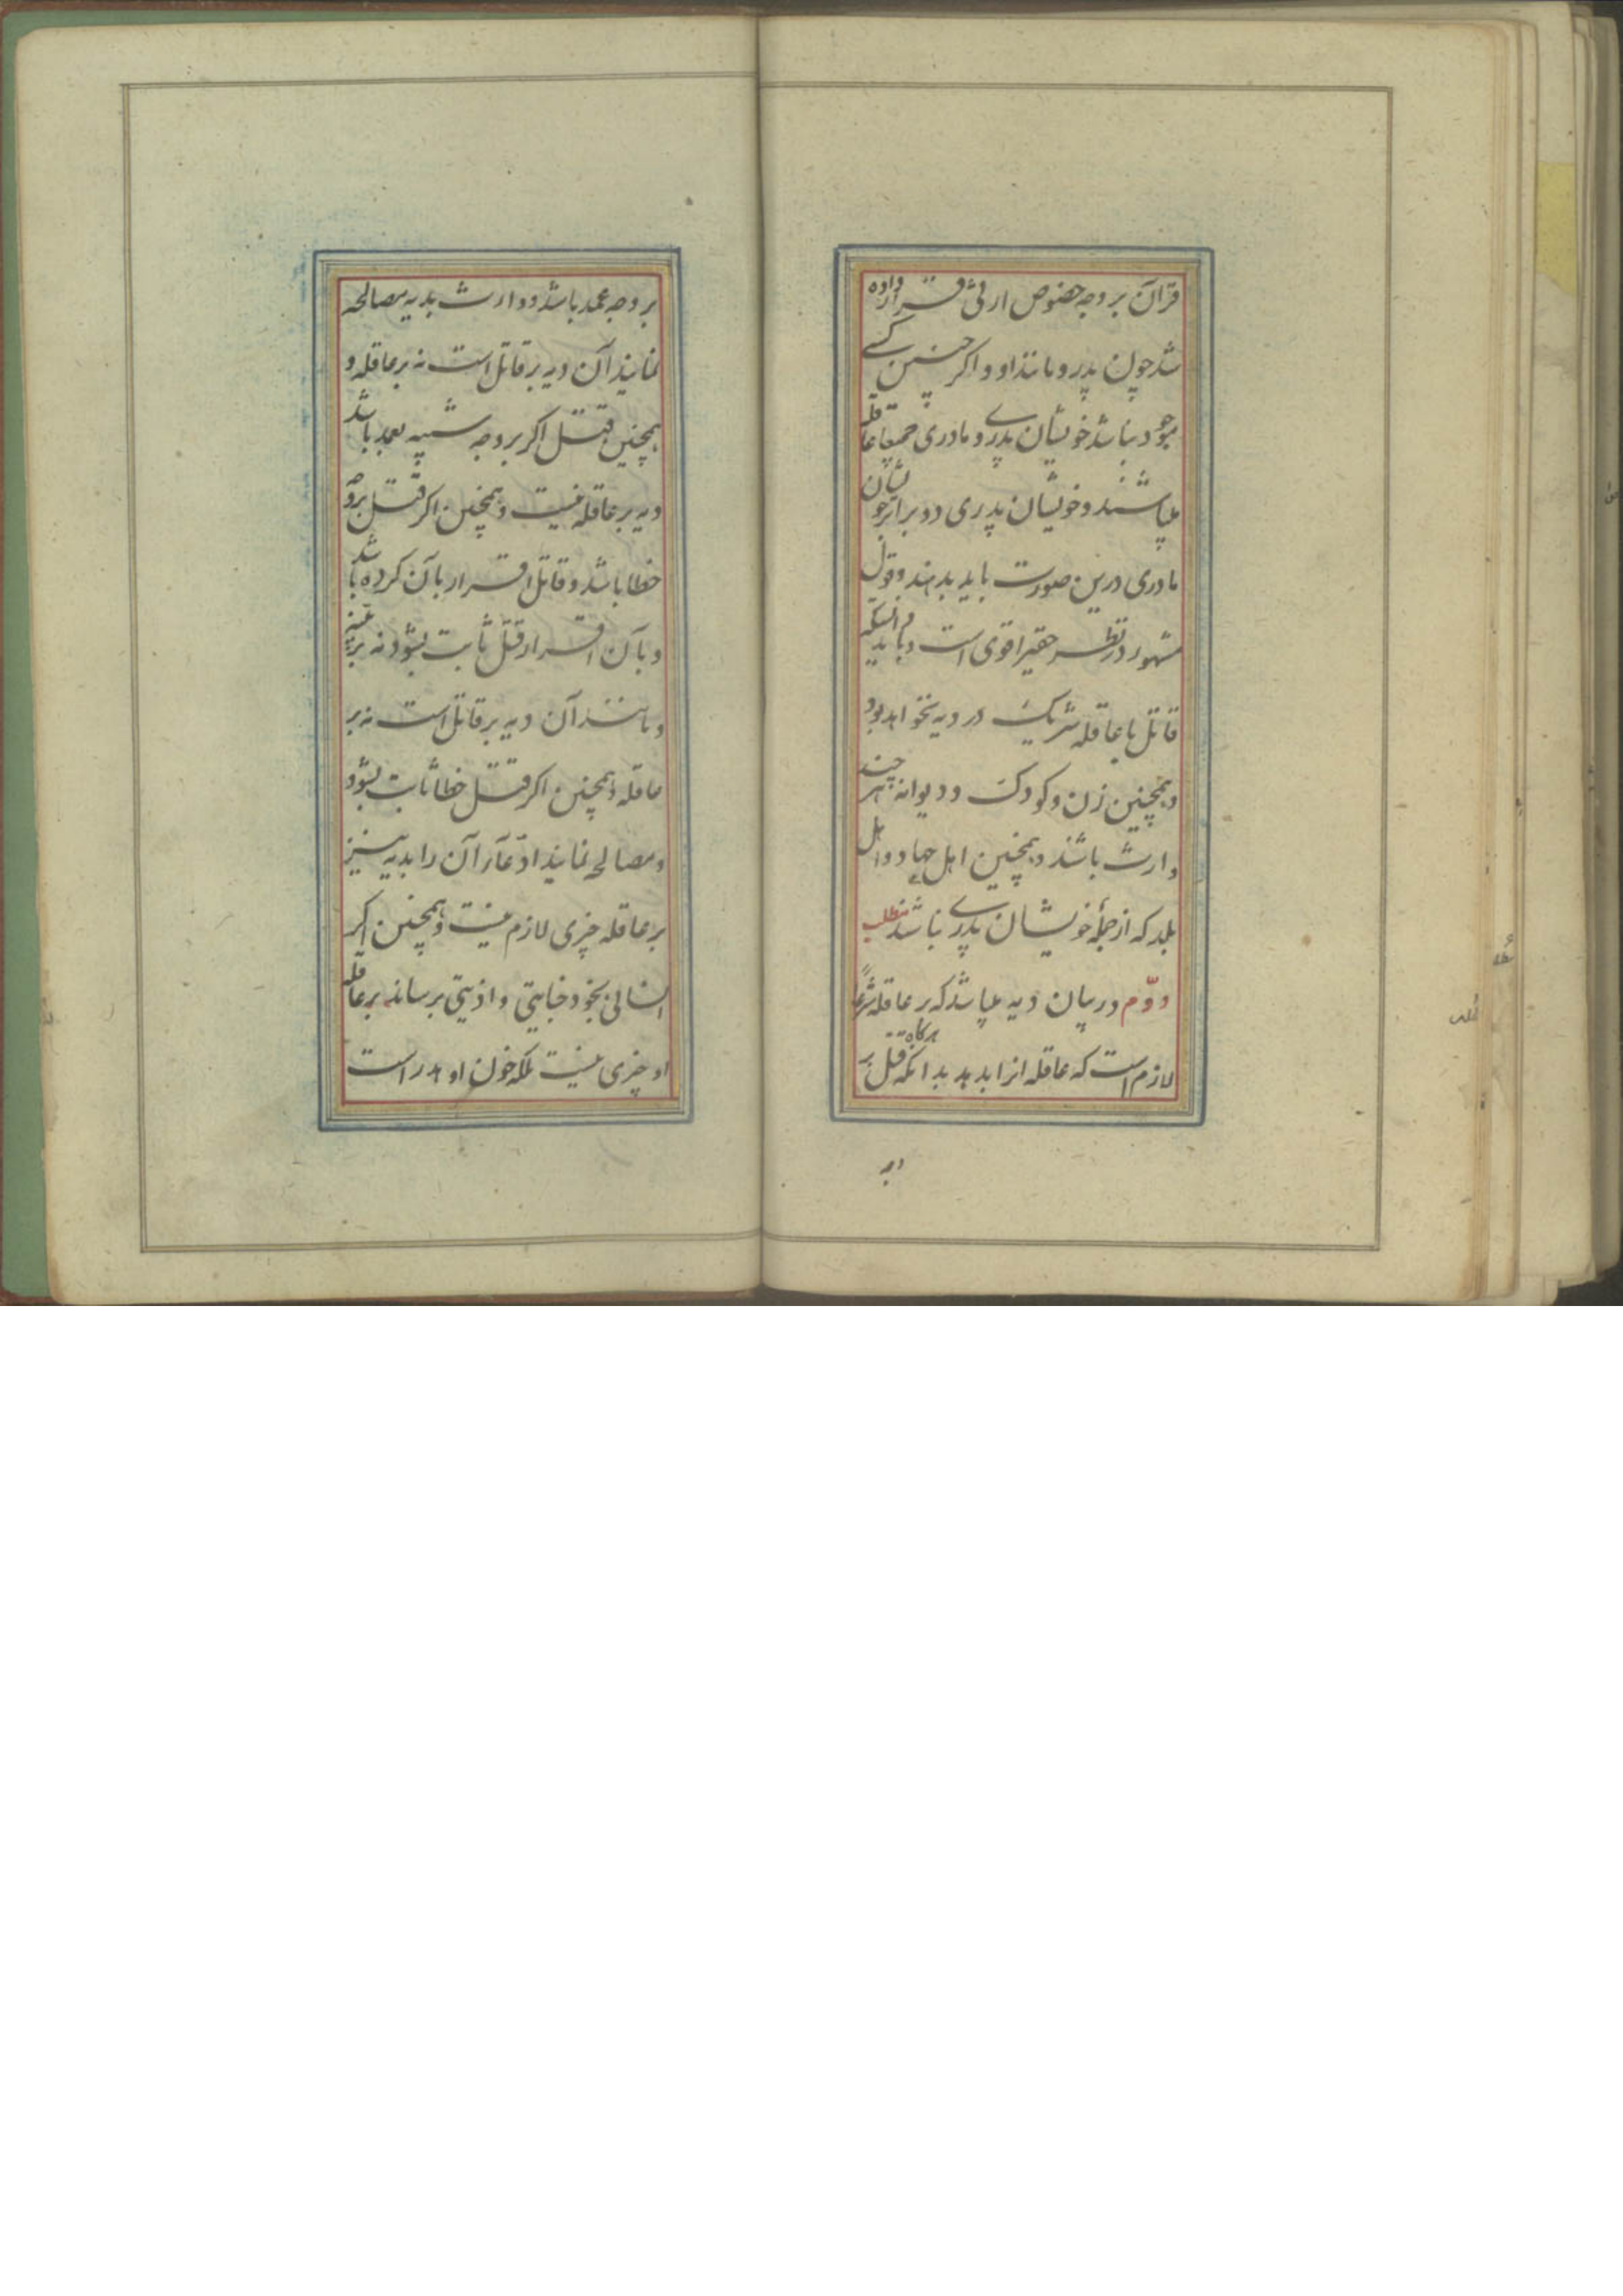 قرآن بر وجه خصوص ارثی قرار داده
شد چون پدر و مانند او و اکر چنین کسی
موجود نباشد خویشان پدری و مادری جمیعا عاقله
میباشند و خویشان پدری دو برابر خویشان
مادری درین صورت باید بدهند و قول
مشهور در نظر حقیر اقوی است و باید
قاتل با عاقله شریک در دیه نخواهد بود
و همچنین زن و کودک و دیوانه هر چند
وارث باشند و همچنین اهل جهاد و اهل
بلد که از جمله خویشان پدری نباشند مطلب
دوّم در بیان دیه میباشد که بر عاقله شرعاً
لازم است که عاقله انرا بدهد بدانکه هرکاه قتل بر
بر وجه عمد باشد و وارث بدیه مصالحه
نمایند آن دیه بر قاتل است نه بر عاقله و
همچنین قتل اکر بر وجه شبیه بعمد باشد
دیه بر عاقله نیست و همچنین اکر قتل بر وجه
خطا باشد و قاتل اقرار بآن کرده باشد
و بآن اقرار قتل ثابت بشود نه ببیّنه
و مانند آن دیه بر قاتل است نه بر
عاقله و همچنین اکر قتل خطا ثابت بشود
و مصالحه نمایند ادّعآء آن را بدیه نیز
بر عاقله چیزی لازم نیست و همچنین اکر
انسانی بخود جنایتی و اذیتی برساند بر عاقله
او چیزی نیست بلکه خون او هدر است